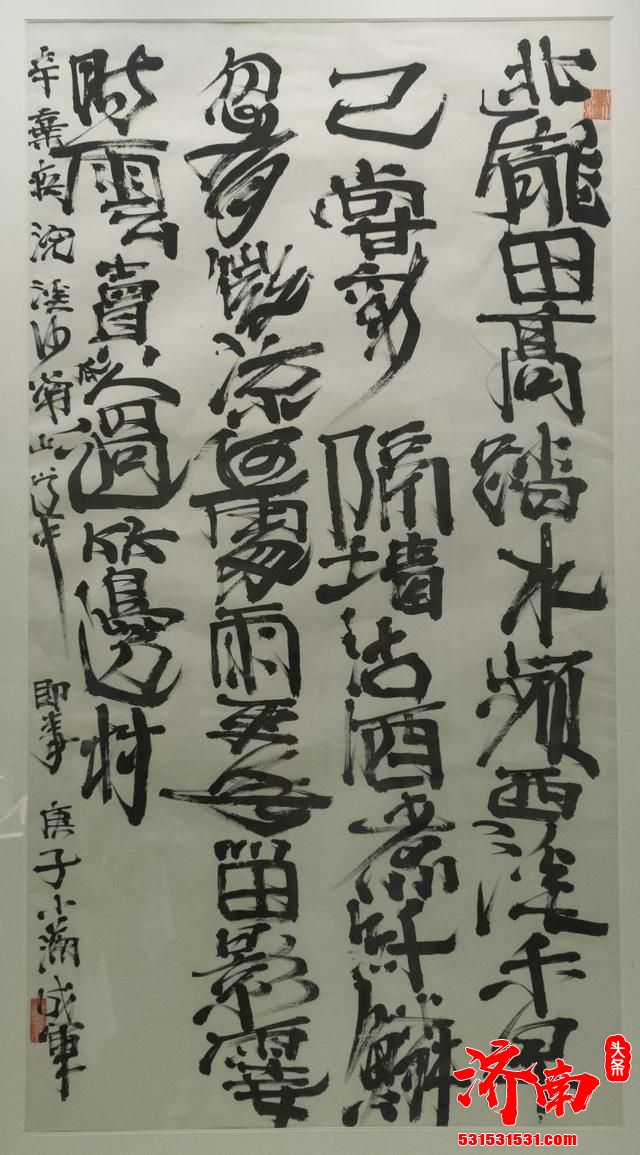 北隴田高踏水頻西溪禾早
已嘗新 隔墙沽酒煮纤鱗
忽有微凉何處雨更无留影霎
时雲賣瓜人過竹邊村
辛棄疾浣溪沙常山道中 即事 庚子小满成軍
济南头条
531531531.com